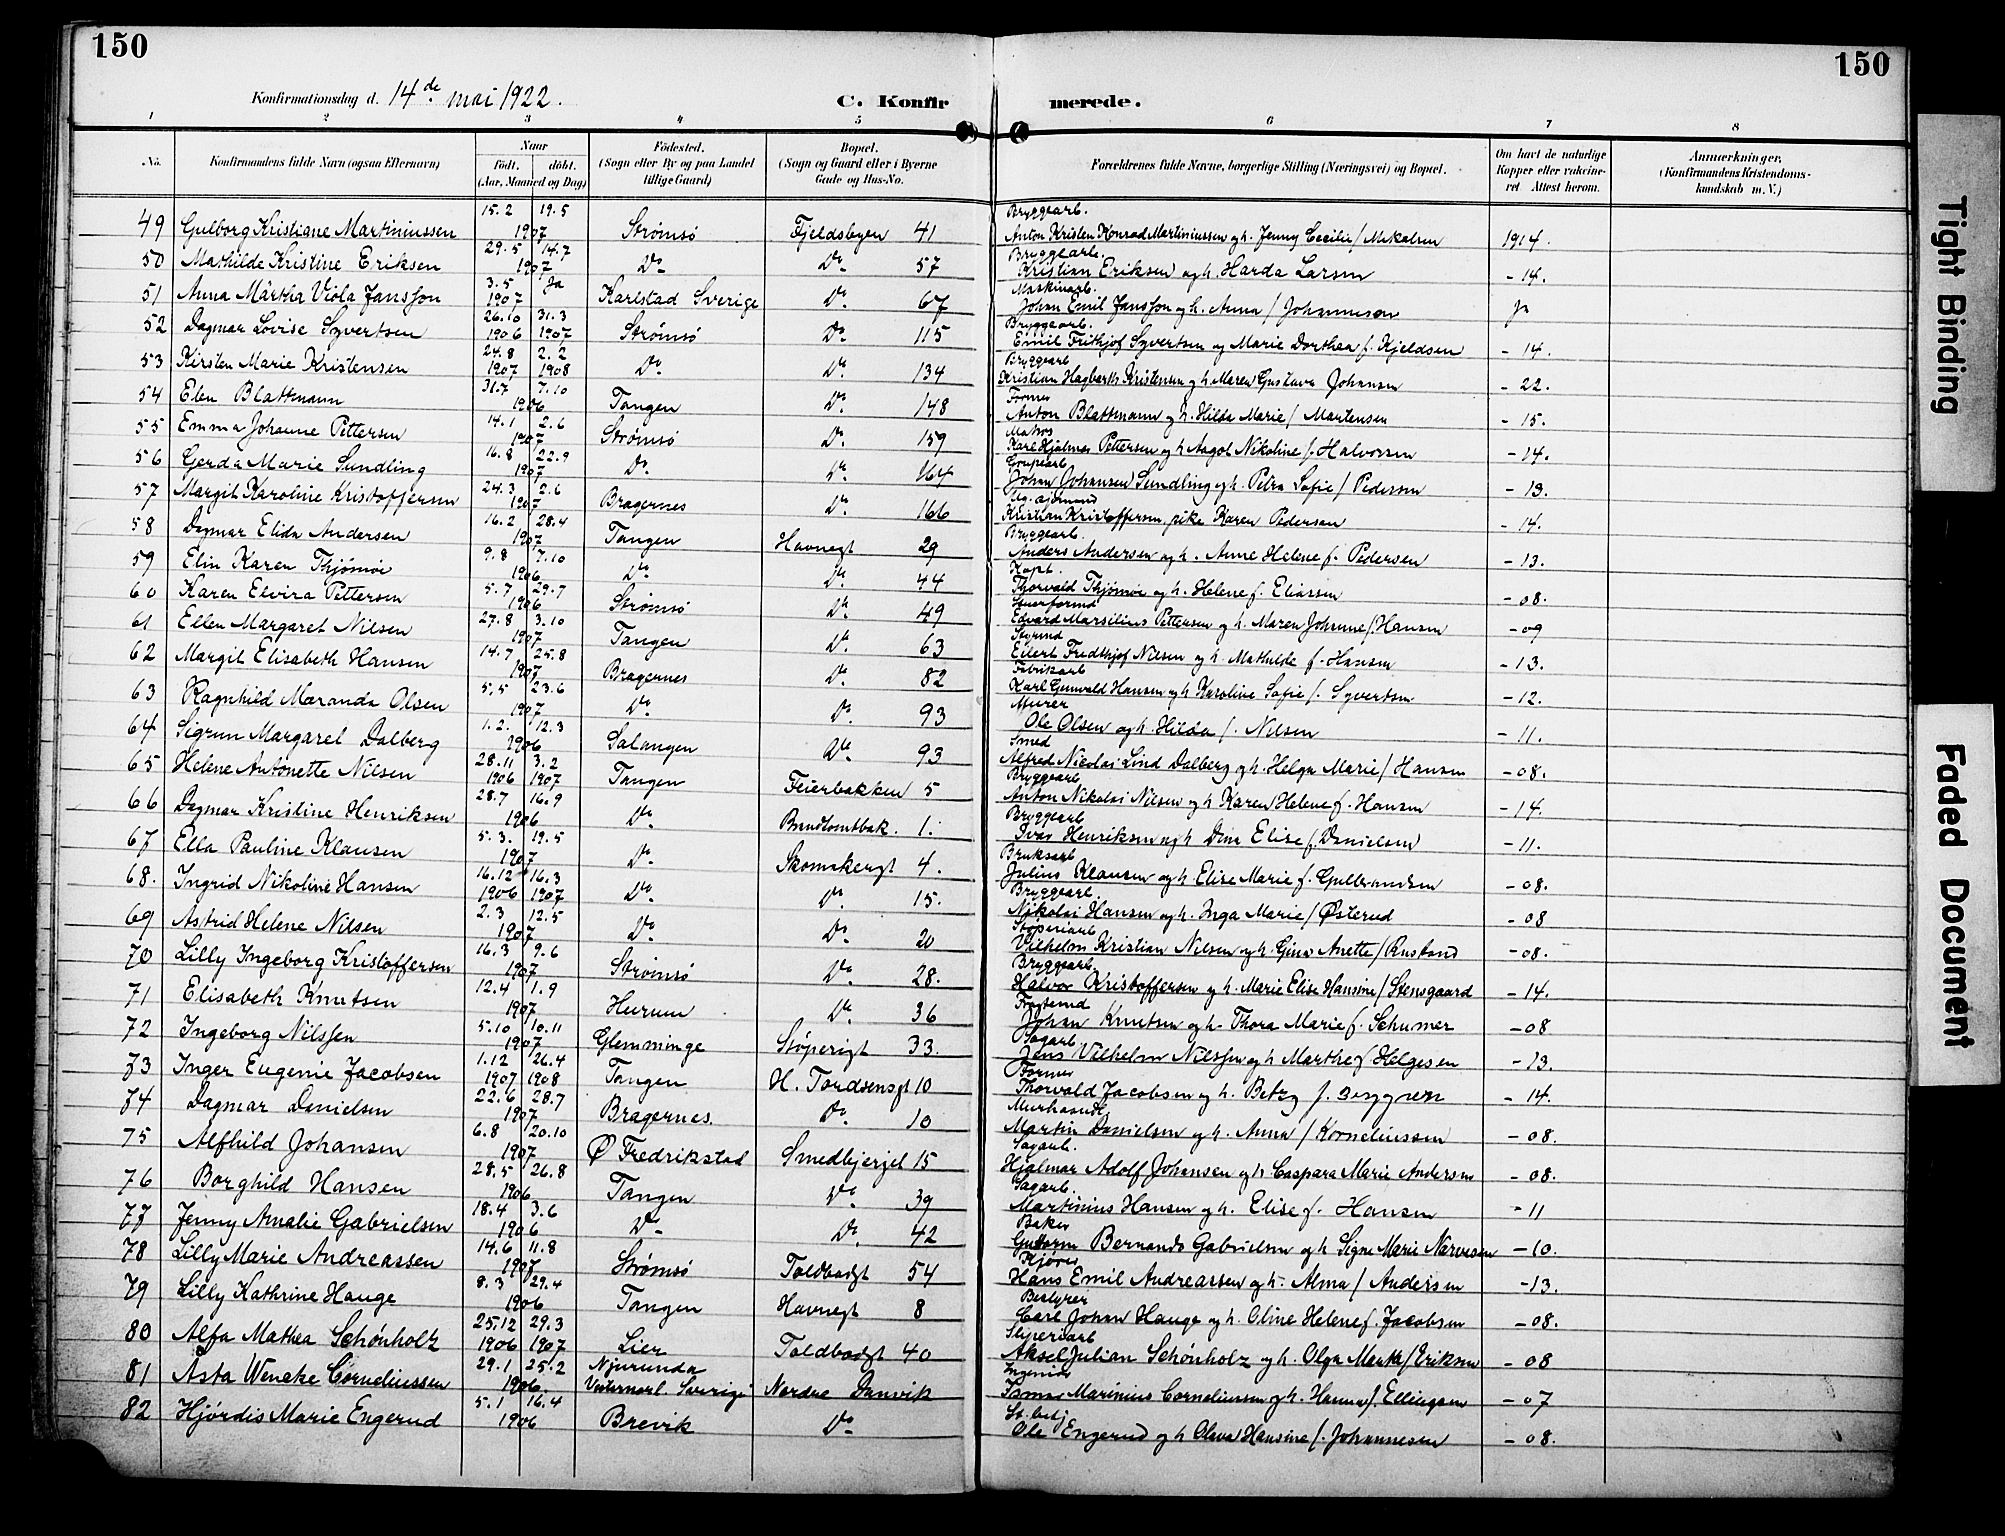 150
150
Konfirmationsdag d. 14de mai 1922.
C. Konfirmerede.
1 2 3 4 5 6 7 8
No. Konfirmandens fulde Navn (ogsaa Efternavn) Naar født. døbt. (Aar, Maaned og Dag) Fødested. (Sogn eller By og paa Landet tillige Gaard) Bopæl. (Sogn og Gaard eller i Byerne Gade og Hus-No. Forældrenes fulde Navne, borgerlige Stilling (Næringsvei) og Bopæl. Om havt de naturlige Kopper eller vaccineret. Attest herom. Anmærkninger. (Konfirmandens Kristendomskundskab m. V.)
49 Gulborg Kristiane Martiniussen 15.2 19.5 1907 Strømsø Fjeldsbyen 41 Bryggearb. Anton Kristen Konrad Martiniussen og h. Jenny Cecilie f. Mikalsen 1914.
50 Mathilde Kristine Eriksen 29.5 14.7 1907 Do Do 57 Bryggearb. Kristian Eriksen og h. Harda Larsen - 14.
51 Anna Märtha Viola Jansson 3.5 ja 1907 Karlstad Sverige Do 67 Maskinarb. Johan Emil Jansson og h. Anna f. Johannesson ja
52 Dagmar Lovise Syvertsen 26.10 31.3 1906 1907 Strømsø Do 115 Bryggearb. Emil Frithjof Syvertsen og Marie Dorthea f. Kjeldsen - 14.
53 Kirsten Marie Kristensen 24.8 2.2 1907 1908 Do Do 134 Bryggearb Kristian Hagbarth Kristensen og h. Maren Gustava Johansen - 22.
54 Elen Blattmann 31.7 7.10 1906 Tangen Do 148 Former Anton Blattmann og h. Hilda Marie f. Martensen - 15.
55 Emma Johanne Pettersen 14.1 2.6 1907 Strømsø Do 159 Matros Karl Hjalmar Pettersen og h Aagot Nikoline f. Halvorsen - 14.
56 Gerda Marie Sundling 16.8 22.9 1907 Do Do 164 Johan Johansen Sundling og h. Petra Sofie f. Pedersen - 13.
57 Margit Karoline Kristoffersen 24.3 2.6 1907 Bragernes Do 166 Kristian Kristoffersen, pike Karen Pedersen - 14.
58 Dagmar Elida Andersen 16.2 28.4 1907 Tangen Havnegt 29 Bryggearb. Anders Andersen og h. Anne Helene f. Pedersen - 13.
59 Elin Karen Thjømøe 9.8 7.10 1906 Do Do 44 Kapt. Thorvald Thjømøe og h. Helene f. Eliassen - 08.
60 Karen Elvira Pettersen 5.7 29.7 1906 Strømsø Do 49 Edvard Marsilius Pettersen og h. Maren Johanne f. Hansen - 09
61 Ellen Margaret Nilsen 27.8 3.10 1907 Tangen Do 63 Styrmd Eilert Fredthjof Nilsen og h. Mathilde f. Hansen - 13.
62 Margit Elisabeth Hansen 14.7 25.8 1907 Bragernes Do 82 Fabrikarb Karl Gunvald Hansen og h Karoline Sofie f. Syvertsen - 12.
63 Ragnhild Maranda Olsen 5.5 23.6 1907 Do Do 93 Murer Ole Olsen og h. Hilda f. Nilsen - 11.
64 Sigrun Margaret Dalberg 1.2. 12.3 1906 Salangen Do 93 Smed Alfred Nicolai Lind Dalberg og h. Helga Marie f Hansen - 08.
65 Helene Antonette Nilsen 28.11 3.2 1906 1907 Tangen Feierbakken 5 Bryggearb Anton Nikolai Nilsen og h Karen Helene f. Hansen - 14.
66 Dagmar Kristine Henriksen 28.7 16.9 1906 Do Brudtomtbak. 1. Bryggearb Ivar Henriksen og h Dina Elise f. Danielsen - 11.
67 Ella Pauline Klausen 5.3. 19.5 1907 Do Skomakergt 4. Bruksarb Julius Klausen og h Elise Marie f. Gulbrandsen - 08.
68. Ingrid Nikoline Hansen 16.12 16.3 1906 1907 Do Do 15. Bryggearb. Nikolai Hansen og h. Inga Marie f Østerud - 08
69 Astrid Helene Nilsen 2.3 12.5 1907 Do Do 20 Støperiarb Vilhelm Kristian Nilsen og h. Gina Anette f Rustand - 08.
70 Lilly Ingeborg Kristoffersen 16.3 9.6 1907 Strømsø Do 28. Bryggearb. Halvor Kristoffersen og h. Marie Elise Hansine f Stensgaard - 14.
71 Elisabeth Knutsen 12.4 1.9 1907 Hurum Do 36 Johan Knutsen og h. Thora Marie f. Schumer - 08
72 Ingeborg Nilssen 5.10 10.11 1907 Glemminge Støperigt 33. Sagarb. Jens Vilhelm Nilssen og h Marthe f Helgesen - 13.
73 Inger Eugenie Jacobsen 1.12 26.4 1907 1908 Tangen H. Tordsensgt 10 Former Thorvald Jacobsen og h. Betzy f. Berggren - 14.
74 Dagmar Danielsen 22.6 28.7 1907 Bragernes. Do 10 Murhaandl. Martin Danielsen og h. Anna f Korneliussen - 08.
75 Alfhild Johansen 6.8 20.10 1907 Ø Fredrikstad Smedbjerjet 15 Sagarb. Hjalmar Adolf Johansen og h Caspara Marie Andersen - 08.
76 Borghild Hansen 28.5 26.8 1906 Tangen Do 39 Sagarb. Martinius Hansen og h. Elise f. Hansen - 11
77 Jenny Amalie Gabrielsen 18.4 3.6 1906 Do Do 42 Baker Guttorm Bernando Gabrielsen og h Signe Marie Narvesen - 10.
78 Lilly Marie Andreassen 14.6 11.8 1907 Strømsø Toldbodgt 54 Kjører Hans Emil Andreassen og h. Alma f Andersen - 13.
79 Lilly Kathrine Hauge 8.3 29.4 1906 Tangen Havnegt 8 Bestyrer Carl Johan Hauge og h. Oline Helene f. Jacobsen - 08.
80 Alfa Mathea Schönholtz 25.12 29.3 1906 1907 Lier Toldbodgt 40 Sliperiarb Aksel Julian Schönholz og h. Olga Marthe f Eriksen - 08
81 Asta Wencke Corneliussen 29.1 25.2 1906 Njurunda Vesternorl. Sverige Nordre Danvik Ingeniør Marinius Corneliussen og h. Hanna f. Ellingsen - 07
82 Hjördis Marie Engerud 5.1 16.4 1906 Brevik Do St.betj Ole Engerud og h Olava Hansine f. Johannesen - 08.
Tight Binding
Faded Document